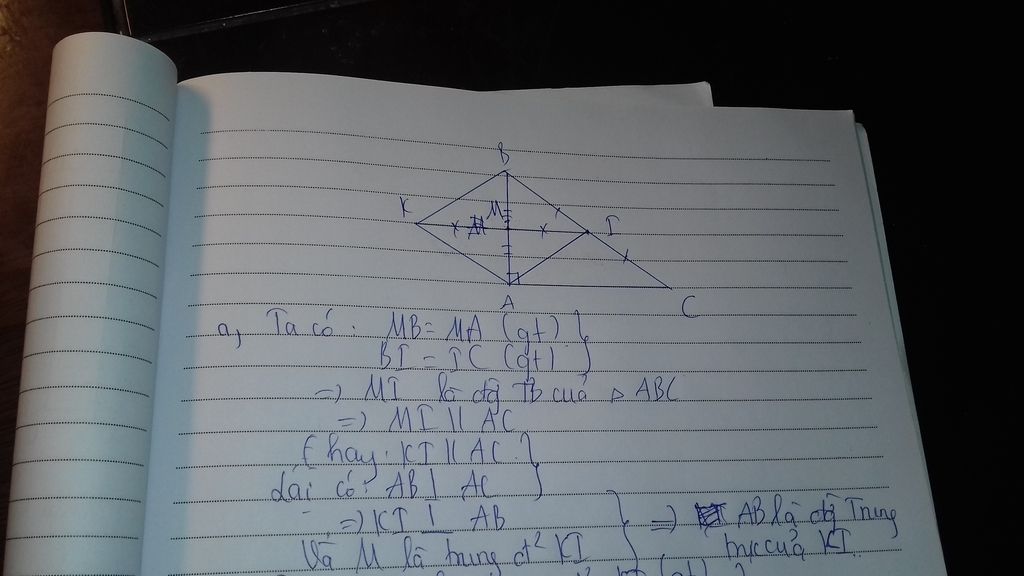 B
K
M
I
A
C
a, Ta có: MB = MA (gt)
BI = IC (gt)
=> MI là đg TB của △ ABC
=> MI // AC
( hay KI // AC )
Lại có: AB ⊥ AC
=> KI ⊥ AB
=> AB là đg Trung
Và M là trung đ² KI
trực của KI.